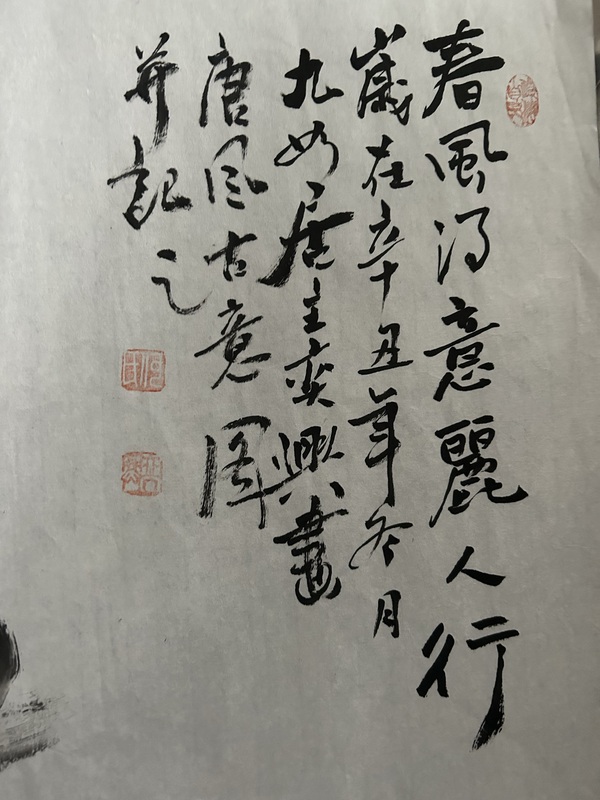 春風得意麗人行
歲在辛丑年冬月
九如居主奕興畫
唐风古意图
并記之